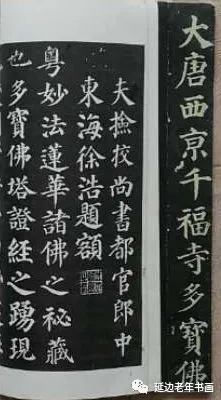 大唐西京千福寺多寶佛
夫撿挍尚書都官郎中
東海徐浩題額
粵妙法蓮華諸佛之秘藏
也多寶佛塔證經之踴現
延边老年书画